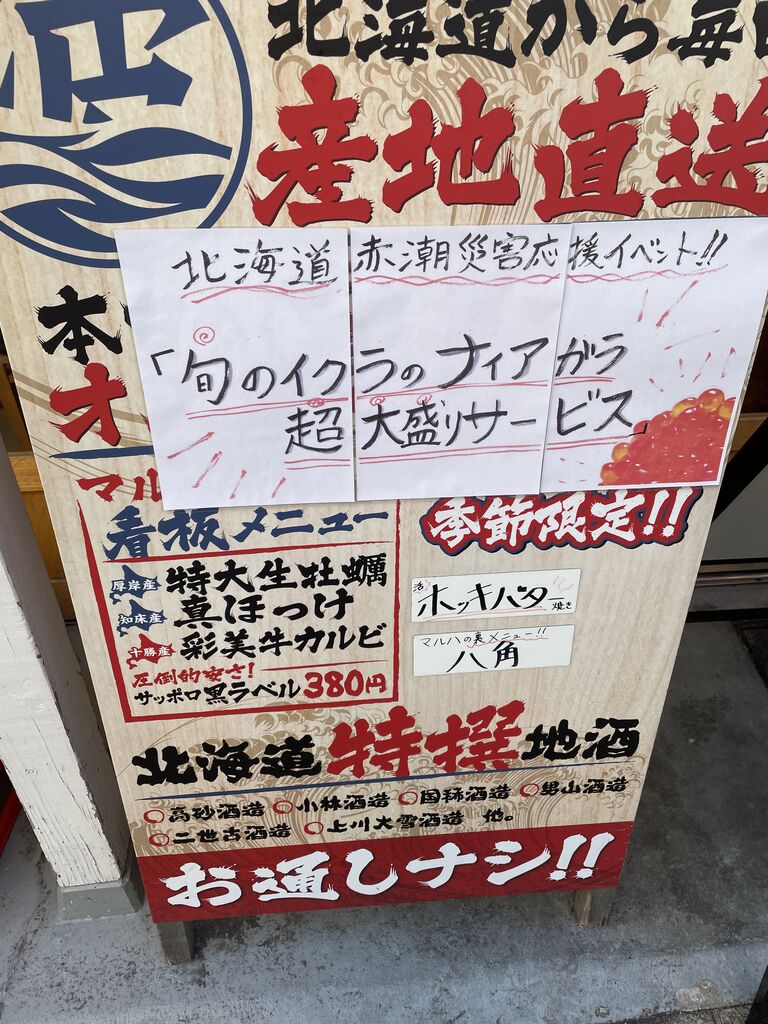 北海道から毎
産地直送
北海道 赤潮災害応援イベント!!
「旬のイクラのナイアガラ
超大盛りサービス」
本
オ
マル
看板メニュー
厚岸産 特大生牡蠣
知床産 真ほっけ
十勝産 彩美牛カルビ
圧倒的安さ!
サッポロ黒ラベル380円
季節限定!!
活 ホッキバター焼き
マルハの裏メニュー!!
八角
北海道特撰地酒
○高砂酒造 ○小林酒造 ○国稀酒造 ○男山酒造
○二世古酒造 ○上川大雪酒造 他。
お通しナシ!!